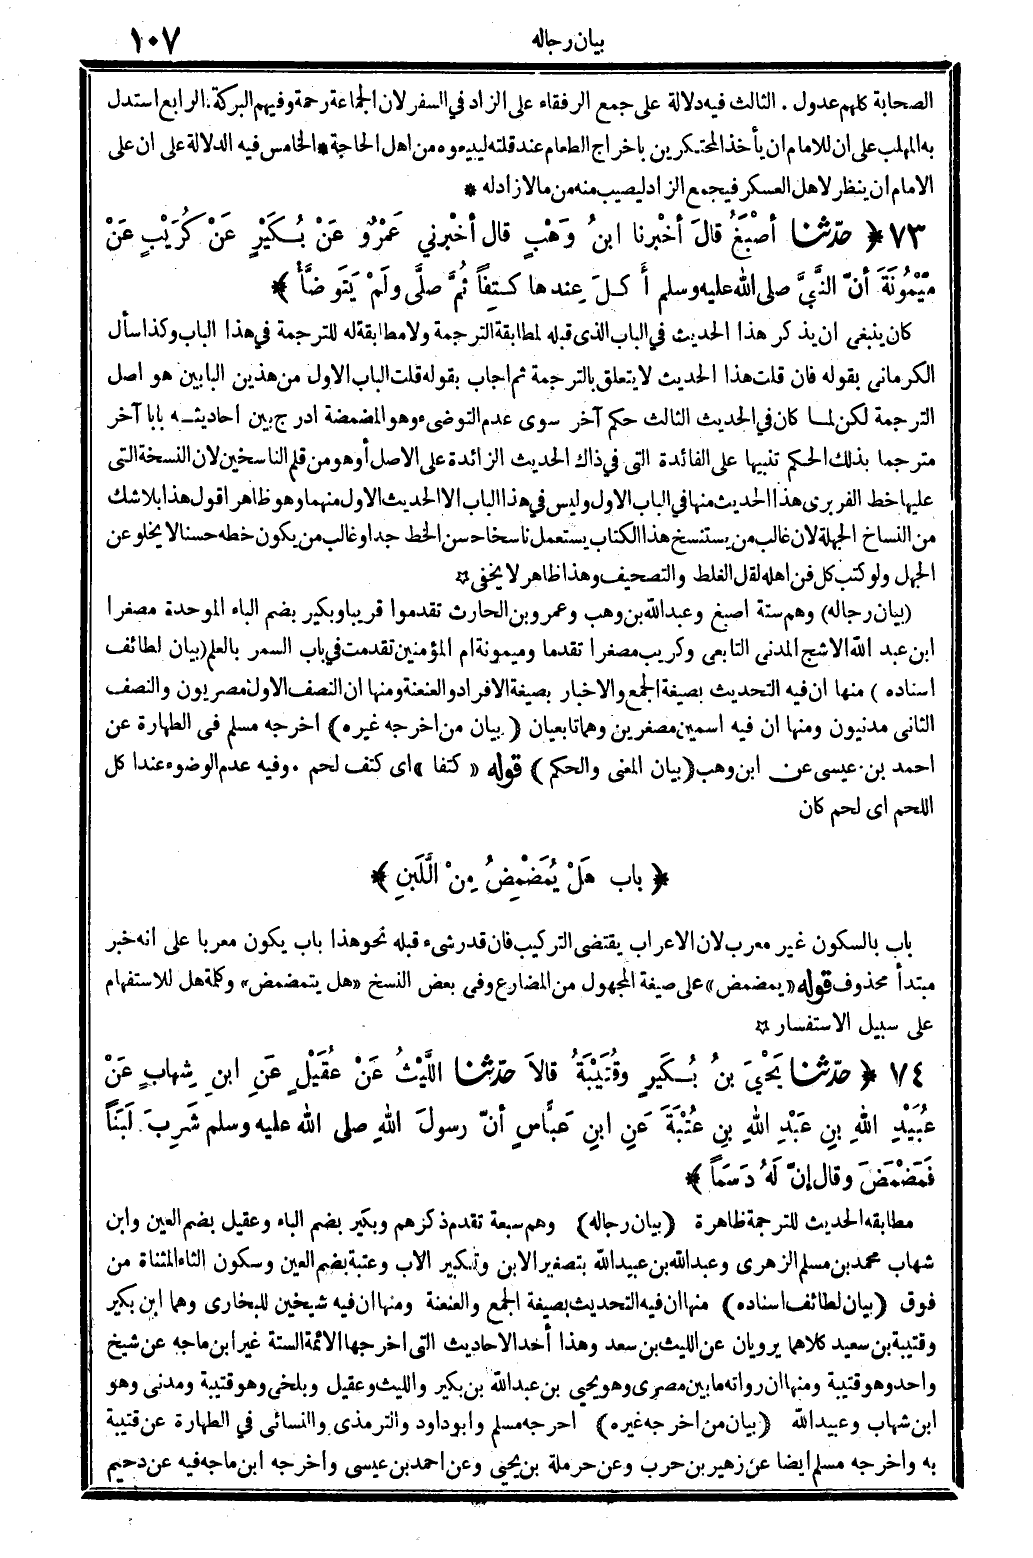 بيان رجاله
١٠٧
الصحابة كلهم عدول . الثالث فيه دلالة على جمع الرفقاء على الزاد في السفر لان الجماعة رحمة وفيهم البركة . الرابع استدل
به المهلب على ان للامام ان يأخذ المحتكرين باخراج الطعام عند قلته ليبيعوه من اهل الحاجة * الخامس فيه الدلالة على ان على
الامام ان ينظر لاهل العسكر فيجمع الزاد ليصيب منه من مالا زاد له *
٧٣ ﴿ حَدَّثَنَا أصْبَغُ قالَ أخْبرنا ابنُ وَهْبٍ قال أخْبرني عَمْرٌو عَنْ بُكَيْرٍ عَنْ كُرَيْبٍ عَنْ
مَيْمُونَةَ أنّ النَّبيَّ صلى الله عليه وسلم أكَلَ عِندها كَتِفاً ثُمَّ صلَّى ولَمْ يَتَوَضَّأْ ﴾
كان ينبغى ان يذكر هذا الحديث في الباب الذى قبله لمطابقة الترجمة ولا مطابقة له للترجمة في هذا الباب وكذا سأل
الكرمانى بقوله فان قلت هذا الحديث لا يتعلق بالترجمة ثم اجاب بقوله قلت الباب الاول من هذين البابين هو اصل
الترجمة لكن لما كان في الحديث الثالث حكم آخر سوى عدم التوضىء وهو المضمضة ادرج بين احاديثه بابا آخر
مترجما بذلك الحكم تنبيها على الفائدة التى في ذاك الحديث الزائدة على الاصل أو هو من قلم الناسخين لان النسخة التى
عليها خط الفربرى هذا الحديث منها في الباب الاول وليس في هذا الباب الا الحديث الاول منهما وهو ظاهر اقول هذا بلا شك
من النساخ الجهلة لان غالب من يستنسخ هذا الكتاب يستعمل ناسخا حسن الخط جدا وغالب من يكون خطه حسنا لا يخلو عن
الجهل ولو كتب كل فن اهله لقل الغلط والتصحيف وهذا ظاهر لا يخفى ☆
(بيان رجاله) وهم ستة اصبغ وعبدالله بن وهب وعمرو بن الحارث تقدموا قريبا وبكير بضم الباء الموحدة مصغرا
ابن عبد الله الاشج المدنى التابعى وكريب مصغرا تقدما وميمونة ام المؤمنين تقدمت في باب السمر بالعلم (بيان لطائف
اسناده ) منها ان فيه التحديث بصيغة الجمع والاخبار بصيغة الافراد والعنعنة ومنها ان النصف الاول مصريون والنصف
الثانى مدنيون ومنها ان فيه اسمين مصغرين وهما تابعيان ( بيان من اخرجه غيره ) اخرجه مسلم فى الطهارة عن
احمد بن عيسى عن ابن وهب ( بيان المعنى والحكم ) قوله « كتفا » اى كتف لحم . وفيه عدم الوضوء عند اكل
اللحم اى لحم كان
﴿ باب هَلْ يُمَضْمِضُ مِنْ اللَّبَنِ ﴾
باب بالسكون غير معرب لان الاعراب يقتضى التركيب فان قدر شىء قبله نحو هذا باب يكون معربا على انه خبر
مبتدأ محذوف قوله « يمضمض » على صيغة المجهول من المضارع وفى بعض النسخ «هل يتمضمض» وكلمة هل للاستفهام
على سبيل الاستفسار ☆
٧٤ ﴿ حَدَّثَنَا يَحْيَى بنُ بُكَيرٍ وقُتَيْبَةُ قالاَ حَدَّثَنَا اللَّيْثُ عَنْ عُقَيْلٍ عَنِ ابنِ شِهابٍ عَنْ
عُبَيْدِ اللهِ بنِ عَبْدِ اللهِ بنِ عُتْبَةَ عَنِ ابنِ عَبَّاسٍ أنّ رسولَ اللهِ صلى الله عليه وسلم شَرِبَ لَبَنَاً
فَمَضْمَضَ وقال إنّ لَهُ دَسَمَاً ﴾
مطابقه الحديث للترجمة ظاهرة (بيان رجاله) وهم سبعة تقدم ذكرهم وبكير بضم الباء وعقيل بضم العين وابن
شهاب محمد بن مسلم الزهرى وعبدالله بن عبيدالله بتصغير الابن وتكبير الاب وعتبة بضم العين وسكون التاء المثناة من
فوق ( بيان لطائف اسناده ) منها ان فيه التحديث بصيغة الجمع والعنعنة ومنها ان فيه شيخين للبخارى وهما ابن بكير
وقتيبة بن سعيد كلاهما يرويان عن الليث بن سعد وهذا أحد الاحاديث التى اخرجها الائمة الستة غير ابن ماجه عن شيخ
واحد وهو قتيبة ومنها ان رواته ما بين مصرى وهو يحيى بن عبدالله بن بكير والليث وعقيل وبلخى وهو قتيبة ومدنى وهو
ابن شهاب وعبيد الله ( بيان من اخرجه غيره ) اخرجه مسلم وابو داود والترمذى والنسائى في الطهارة عن قتيبة
به واخرجه مسلم ايضا عن زهير بن حرب وعن حرملة بن يحيى وعن احمد بن عيسى واخرجه ابن ماجه فيه عن دحيم